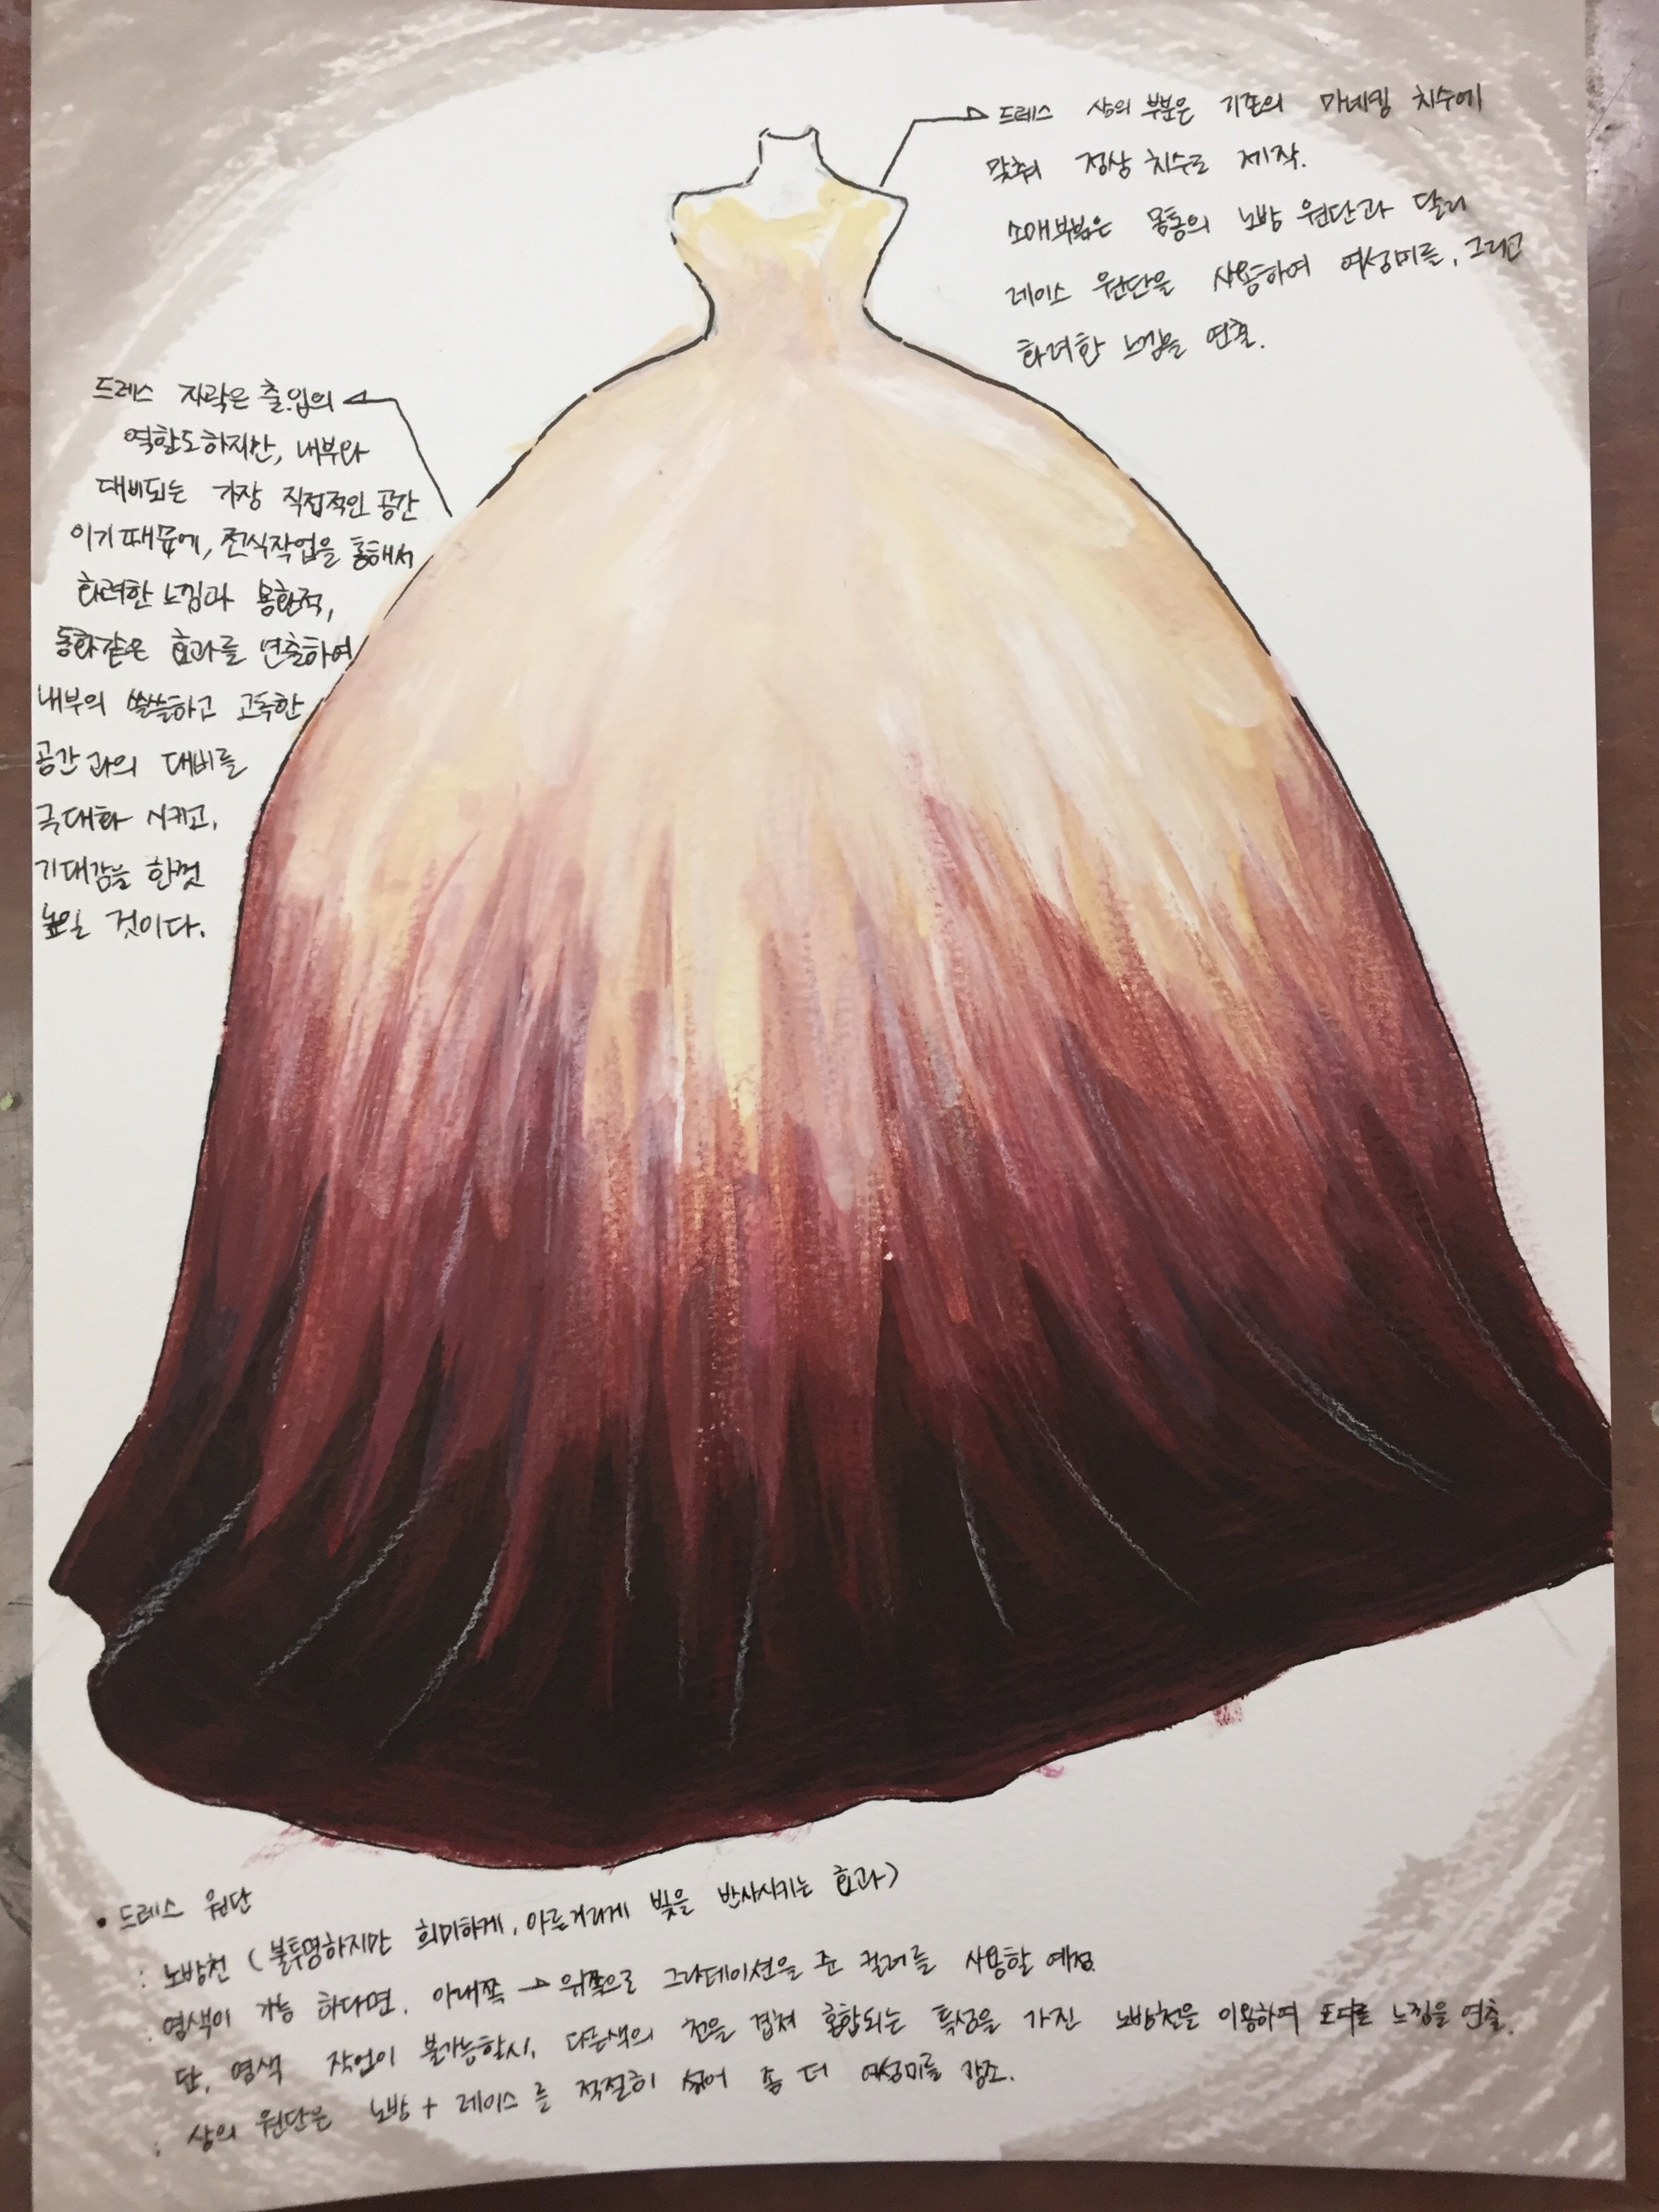 드레스 상의 부분은 기존의 마네킹 치수에
맞춰 정상 치수로 제작.
소매부분은 몸통의 노방 원단과 달리
레이스 원단을 사용하여 여성미를, 그리고
화려한 느낌을 연출.
드레스 자락은 출입의
역할도하지만, 내부와
대비되는 가장 직접적인 공간
이기때문에, 전식작업을 통해서
화려한 느낌과 몽환적,
동화같은 효과를 연출하여
내부의 쓸쓸하고 고독한
공간과의 대비를
극대화 시키고,
기대감을 한껏
높일 것이다.
• 드레스 원단
: 노방천 (불투명하지만 희미하게, 아른거리게 빛을 반사시키는 효과)
: 염색이 가능 하다면, 아래쪽 → 위쪽으로 그라데이션을 준 컬러를 사용할 예정.
단, 염색 작업이 불가능할시, 다른색의 천을 겹쳐 혼합되는 특성을 가진 노방천을 이용하여 또다른 느낌을 연출.
: 상의 원단은 노방 + 레이스를 적절히 섞어 좀 더 여성미를 강조.